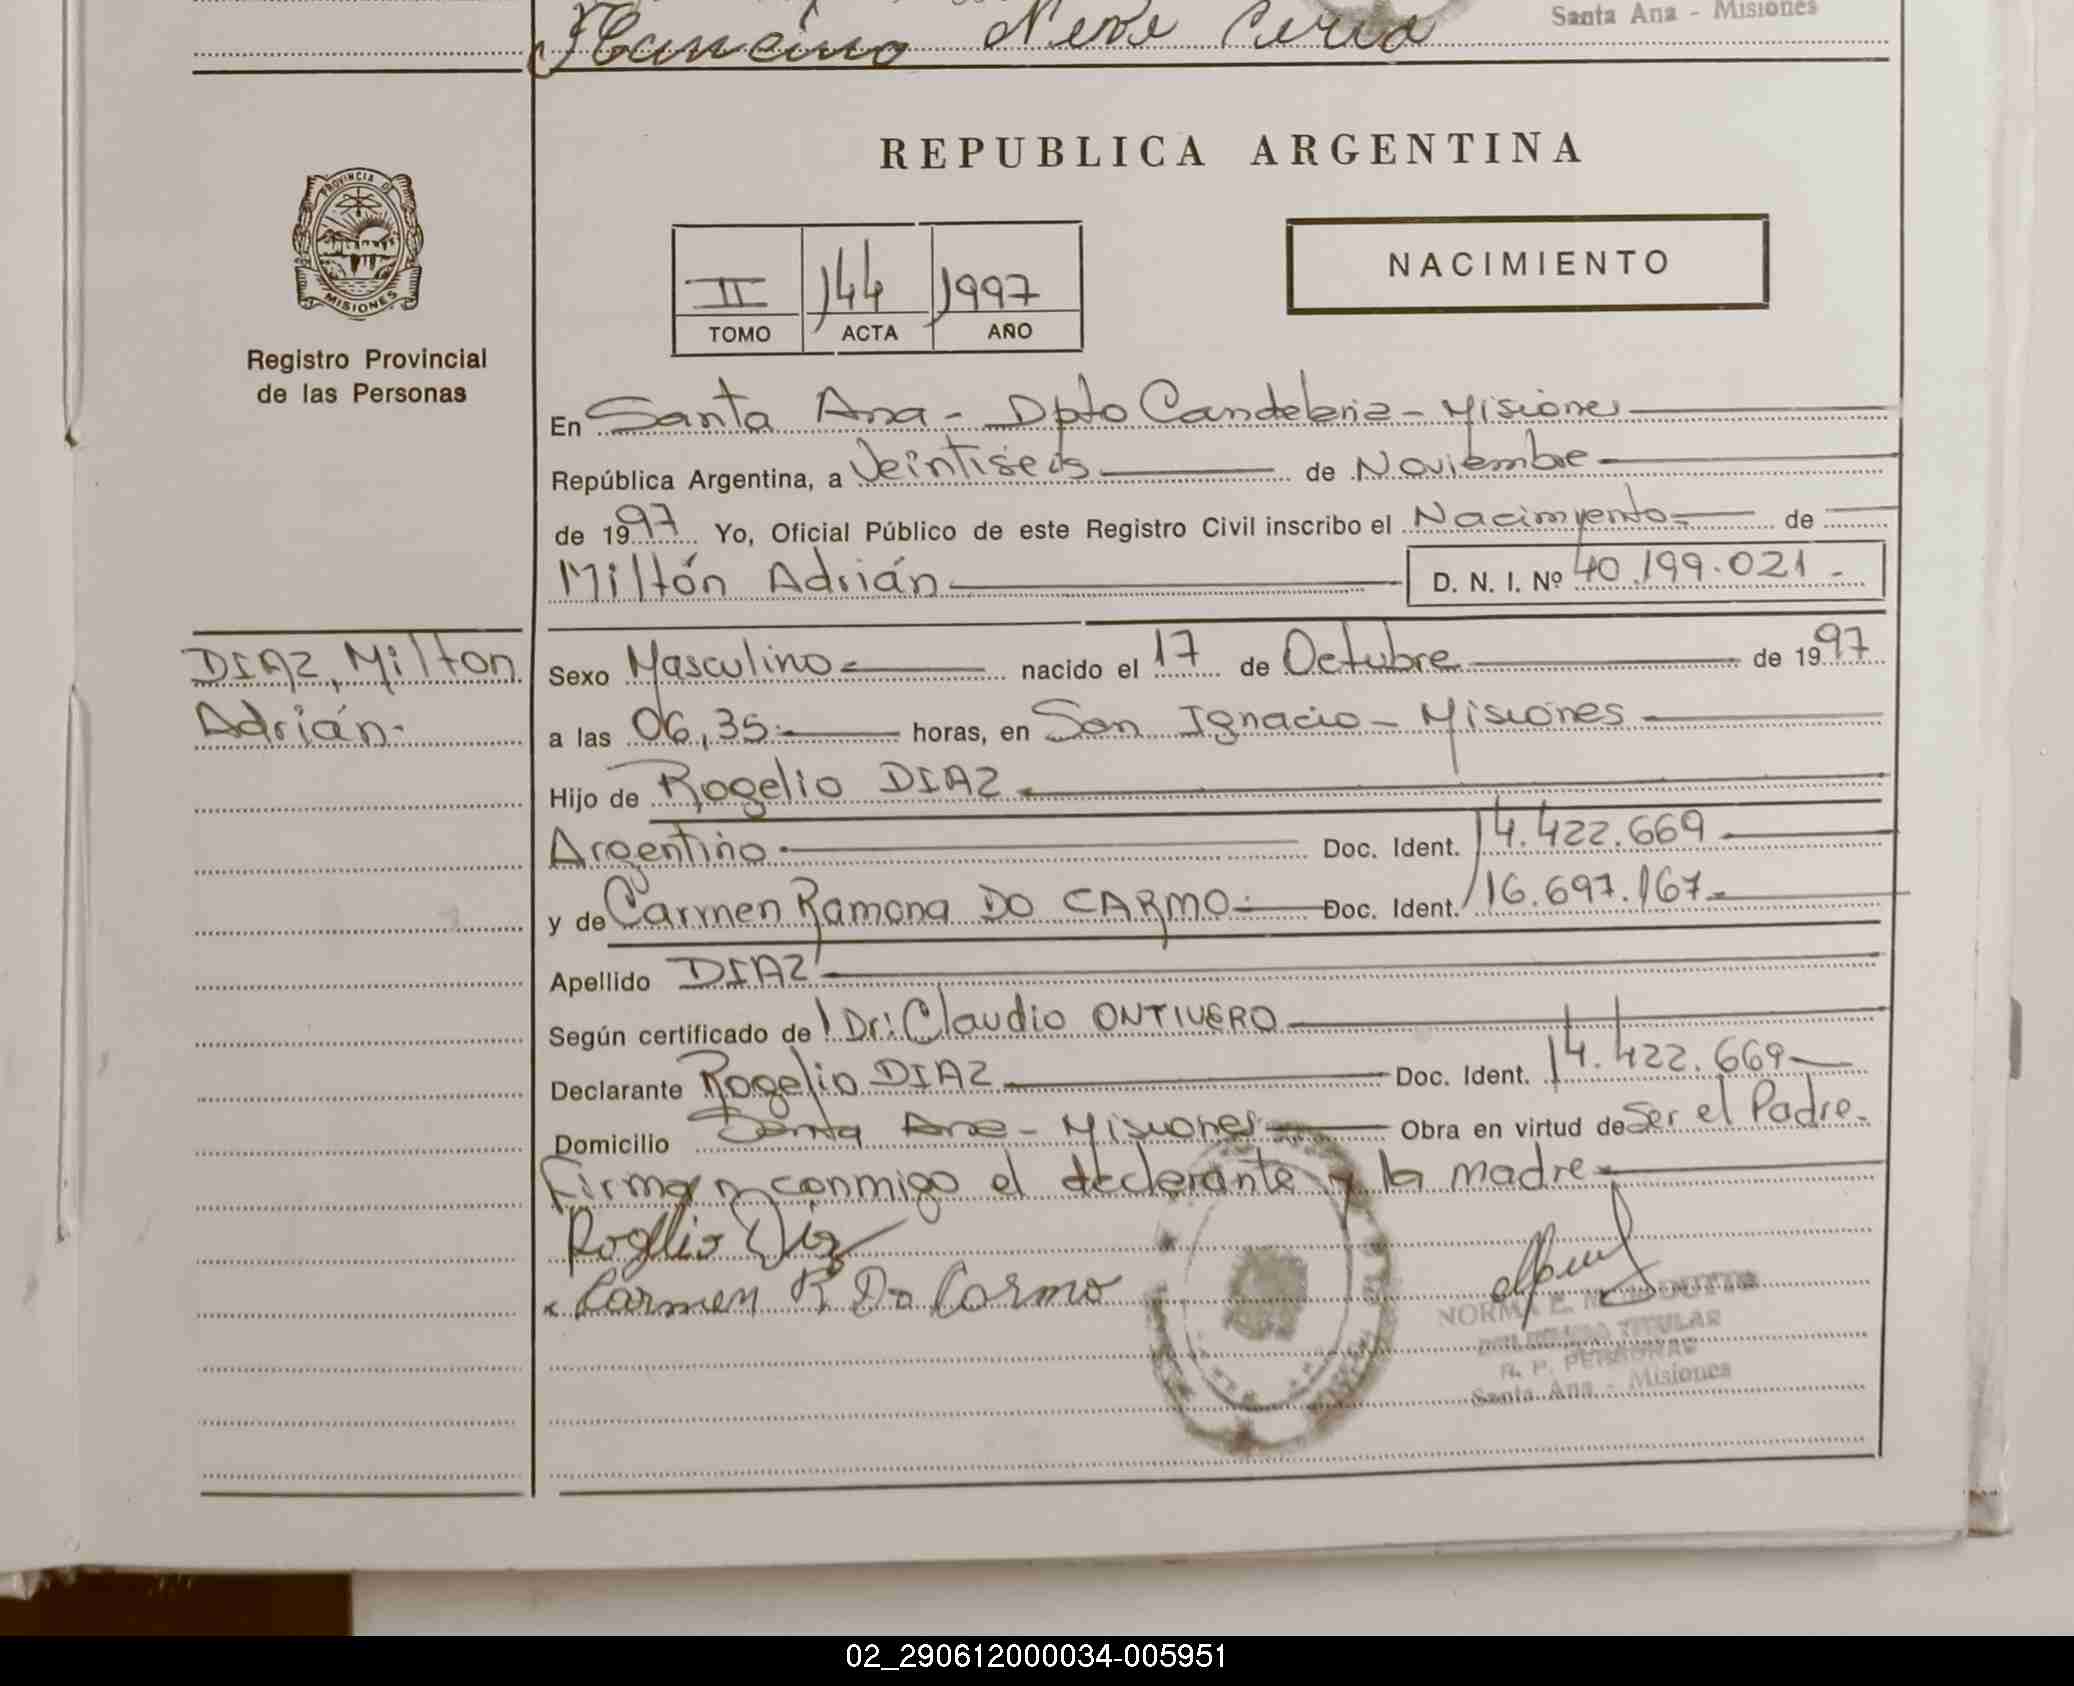 Santa Ana - Misiones
REPUBLICA ARGENTINA
PROVINCIA DE
MISIONES
Registro Provincial
de las Personas
II 144 1997
TOMO ACTA AÑO
NACIMIENTO
En Santa Ana - Dpto Candelaria - Misiones
República Argentina, a Veintiseis de Noviembre
de 1997 Yo, Oficial Público de este Registro Civil inscribo el Nacimyento de
Miltón Adrián D. N. I. Nº 40.199.021.-
DIAZ, Milton
Adrián.-
Sexo Masculino nacido el 17 de Octubre de 1997
a las 06,35 horas, en San Ignacio - Misiones
Hijo de Rogelio DIAZ
Argentino Doc. Ident. 14.422.669
y de Carmen Ramona DO CARMO Doc. Ident. 16.697.167
Apellido DIAZ
Según certificado de Dr: Claudio ONTIVERO
Declarante Rogelio DIAZ Doc. Ident. 14.422.669
Domicilio Santa Ana - Misiones Obra en virtud de Ser el Padre.
Firman conmigo el declarante y la madre
Rogelio Diaz
Carmen R Do Carmo
NORMA E.
TITULAR
R. P. PERSONAS
Santa Ana - Misiones
02_290612000034-005951